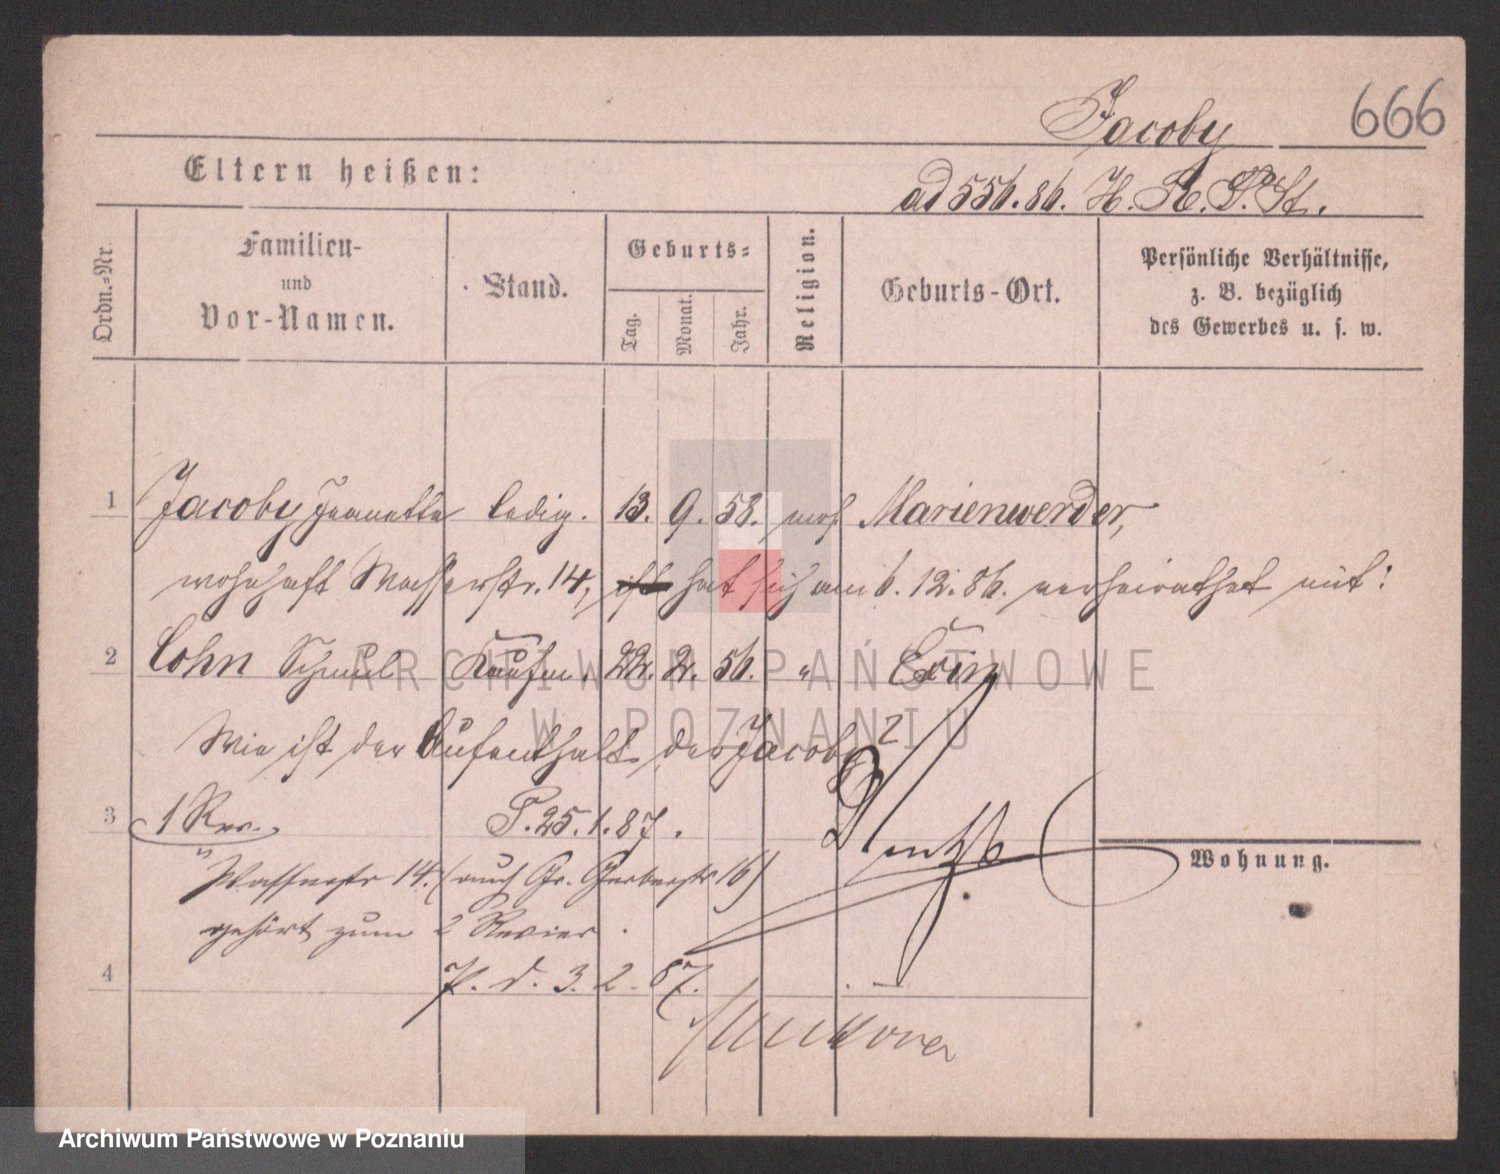 Jacoby 666
Eltern heißen:
ad 556.86. H. R. P. St.
Ordn.-Nr.
Familien-
und
Vor-Namen.
Stand.
Geburts-
Tag.
Monat.
Jahr.
Religion.
Geburts-Ort.
Persönliche Verhältnisse,
z. B. bezüglich
des Gewerbes u. s. w.
1 Jacoby Jeanette ledig. 13. 9. 58. mos Marienwerder,
wohnhaft Wasserstr. 14, ist hat sich am 6. 12. 86. verheirathet mit:
2 Cohn Schmul Kaufm. 22. 2. 56. " Exin
Wie ist der Aufenthalt der Jacoby?
3 1 Rev. P. 25. 1. 87.
Wohnung.
Wasserstr 14. (auch Gr. Gerberstr 16)
gehört zum 2 Revier.
4 P. d. 3. 2. 87.
ARCHIWUM PAŃSTWOWE
W POZNANIU
Archiwum Państwowe w Poznaniu